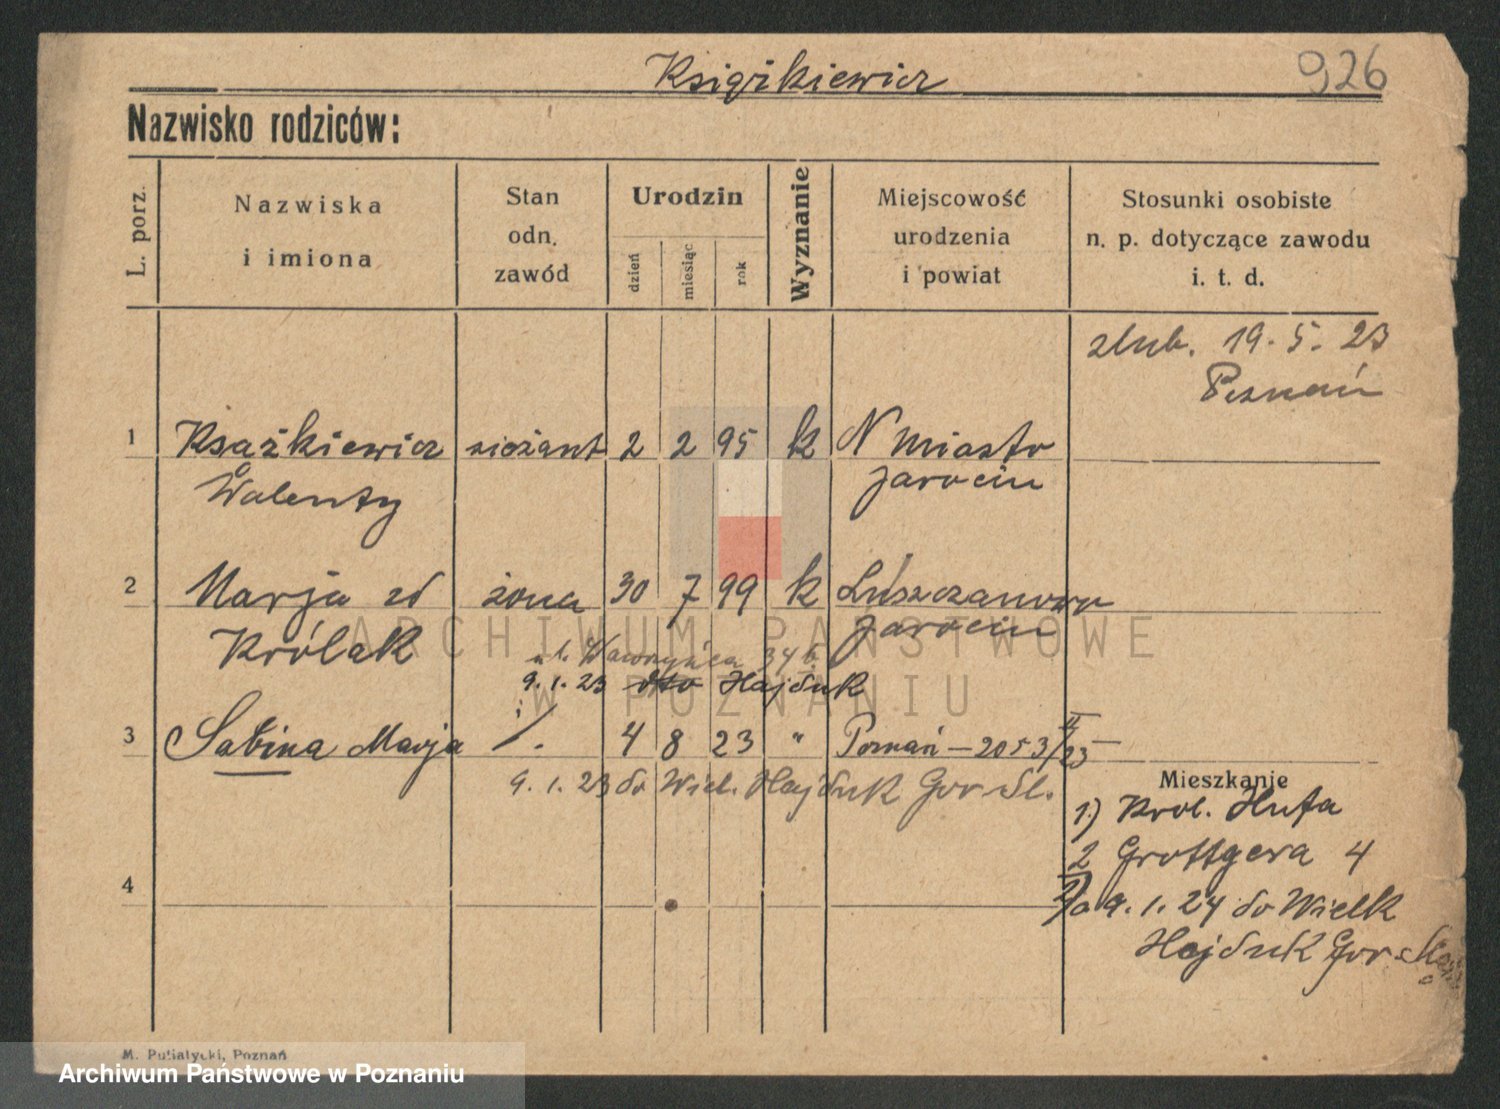 Książkiewicz 926
Nazwisko rodziców:
L. porz. Nazwiska i imiona Stan odn. zawód Urodzin dzień miesiąc rok Wyznanie Miejscowość urodzenia i powiat Stosunki osobiste n. p. dotyczące zawodu i. t. d.
ślub. 19. 5. 23
Poznań
1 Książkiewicz sierżant 2 2 95 k N Miasto
Walenty Jarocin
2 Marja zd żona 30 7 99 k Luszczanowo
Królak Jarocin
ul. Wawrzyńca 34 b
9. 1. 23 dto Hajduk
3 Sabina Marja /. 4 8 23 " Poznań – 2053/
9. 1. 23 do Wiel. Hajduk Gor Sl.
Mieszkanie
1) Krol. Huta
2 Grottgera 4
4
9. 1. 24 do Wielk
Hajduk Gor
M. Putiatycki, Poznań
ARCHIWUM PAŃSTWOWE
W POZNANIU
Archiwum Państwowe w Poznaniu